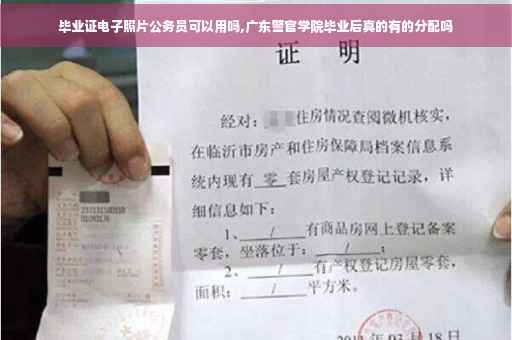 毕业证电子照片公务员可以用吗,广东警官学院毕业后真的有的分配吗
证 明
经对: 住房情况查阅微机核实,
在临沂市房产和住房保障局档案信息系
统内现有 零 套房屋产权登记记录, 详
细信息如下:
1、 / 有商品房网上登记备案
零套, 坐落位于: / ;
2、 / 有产权登记房屋零套,
面积: / 平方米。
03月18日